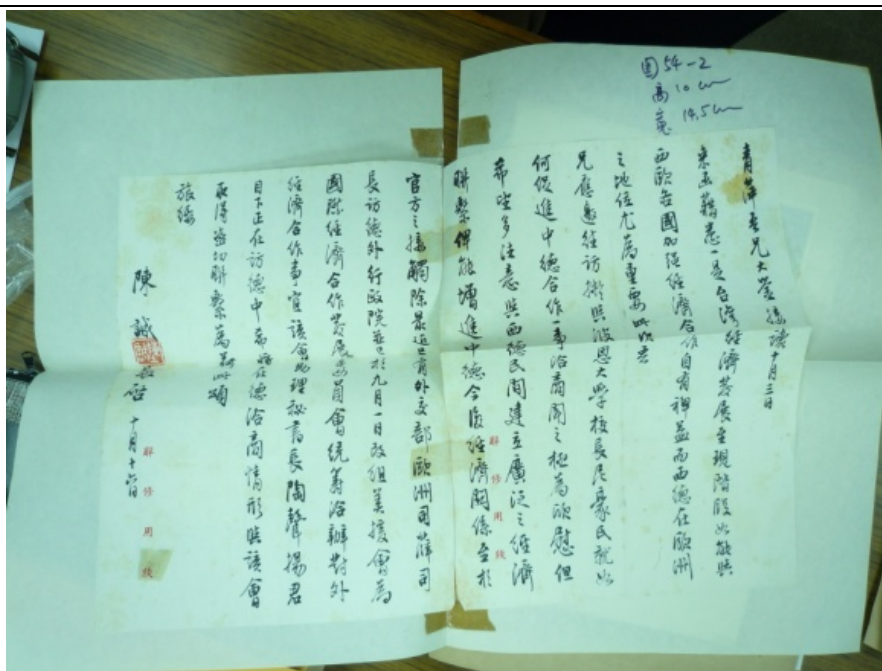 圖54-2
高10cm
寬14.5cm
青萍吾兄大鑒接讀十月三日
來函藉悉一是台灣經濟發展至現階段如能與
西歐各國加強經濟合作自有裨益而西德在歐洲
之地位尤為重要此次吾
兄應邀往訪漸與波恩大學校長尼豪氏就如
何促進中德合作一事洽商聞之極為欣慰但
希望多注意與西德民間建立廣泛之經濟
聯繫俾能增進中德今後經濟關係至於
官方之接觸除最近已有外交部歐洲司薛司
長訪德外行政院並已於九月一日改組美援會為
國際經濟合作發展委員會統籌洽辦對外
經濟合作事宜該會副秘書長陶聲揚君
目下正在訪德中希將在德洽商情形與該會
取得密切聯繫為荷此頌
旅綏
陳誠 敬啟 十月十六日
聯修用紙
聯修用紙